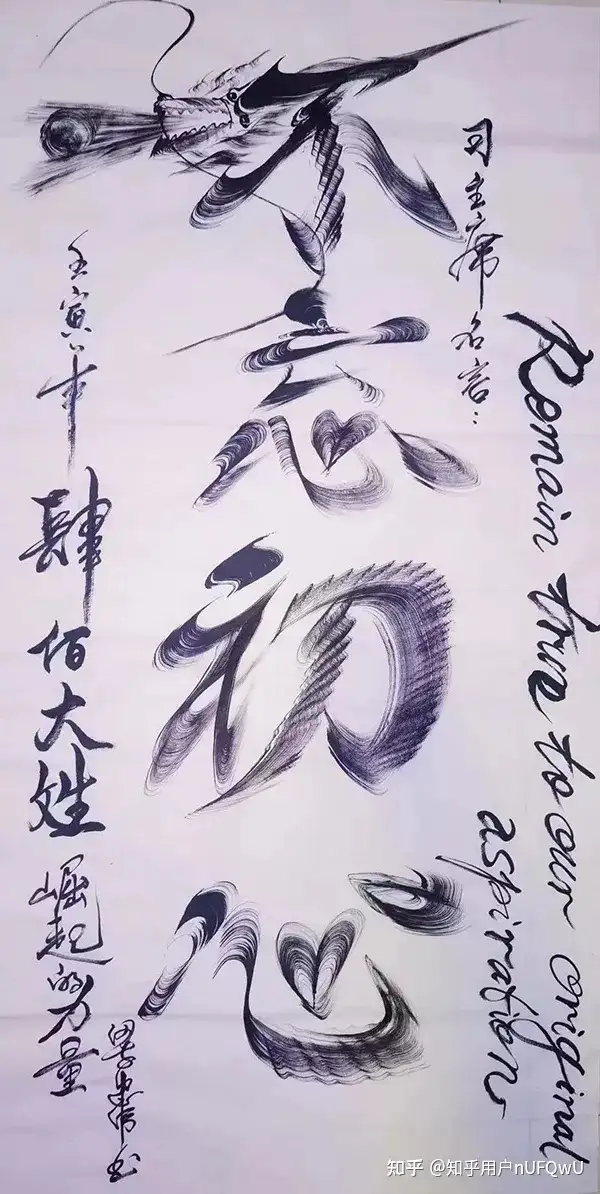 习主席名言：
Remain true to our original
aspiration
不忘初心
壬寅年
肆佰大姓
崛起的力量
知乎 @知乎用户nUFQwU